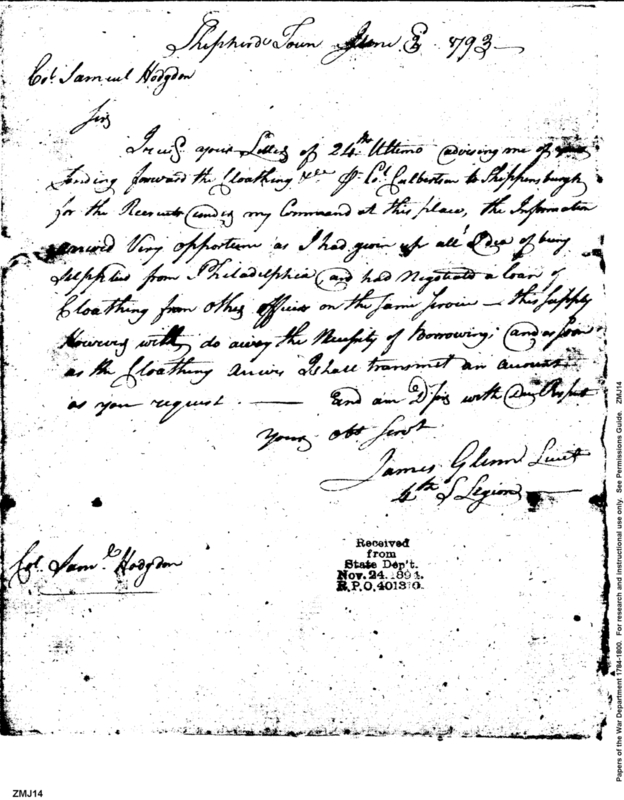 Shepherds Town June 2 1793
Col. Samuel Hodgdon
Sir
I recd. your Letter of 24th Ultimo advising me of your
sending forward the Cloathing &ca Pr Col. Culbertson to Shippensburgh
for the Recruits under my Command at this place, the Information
arrived Very opportune as I had given up all Idea of being
supplied from Philadelphia and had negotiated a loan of
Cloathing from other officers on the same service — this supply
However will do away the Necessity of Borrowing; and as soon
as the Cloathing arives I shall transmit an account
as you request. — And am D Sir with due Respect
Your obt Servt
James Glenn Lieut
4th S Legion
Col. Saml. Hodgdon
Received
from
State Dep't.
Nov. 24. 1894.
R.P.O. 401370.
Papers of the War Department 1784-1800. For research and instructional use only. See Permissions Guide. ZMJ14
ZMJ14